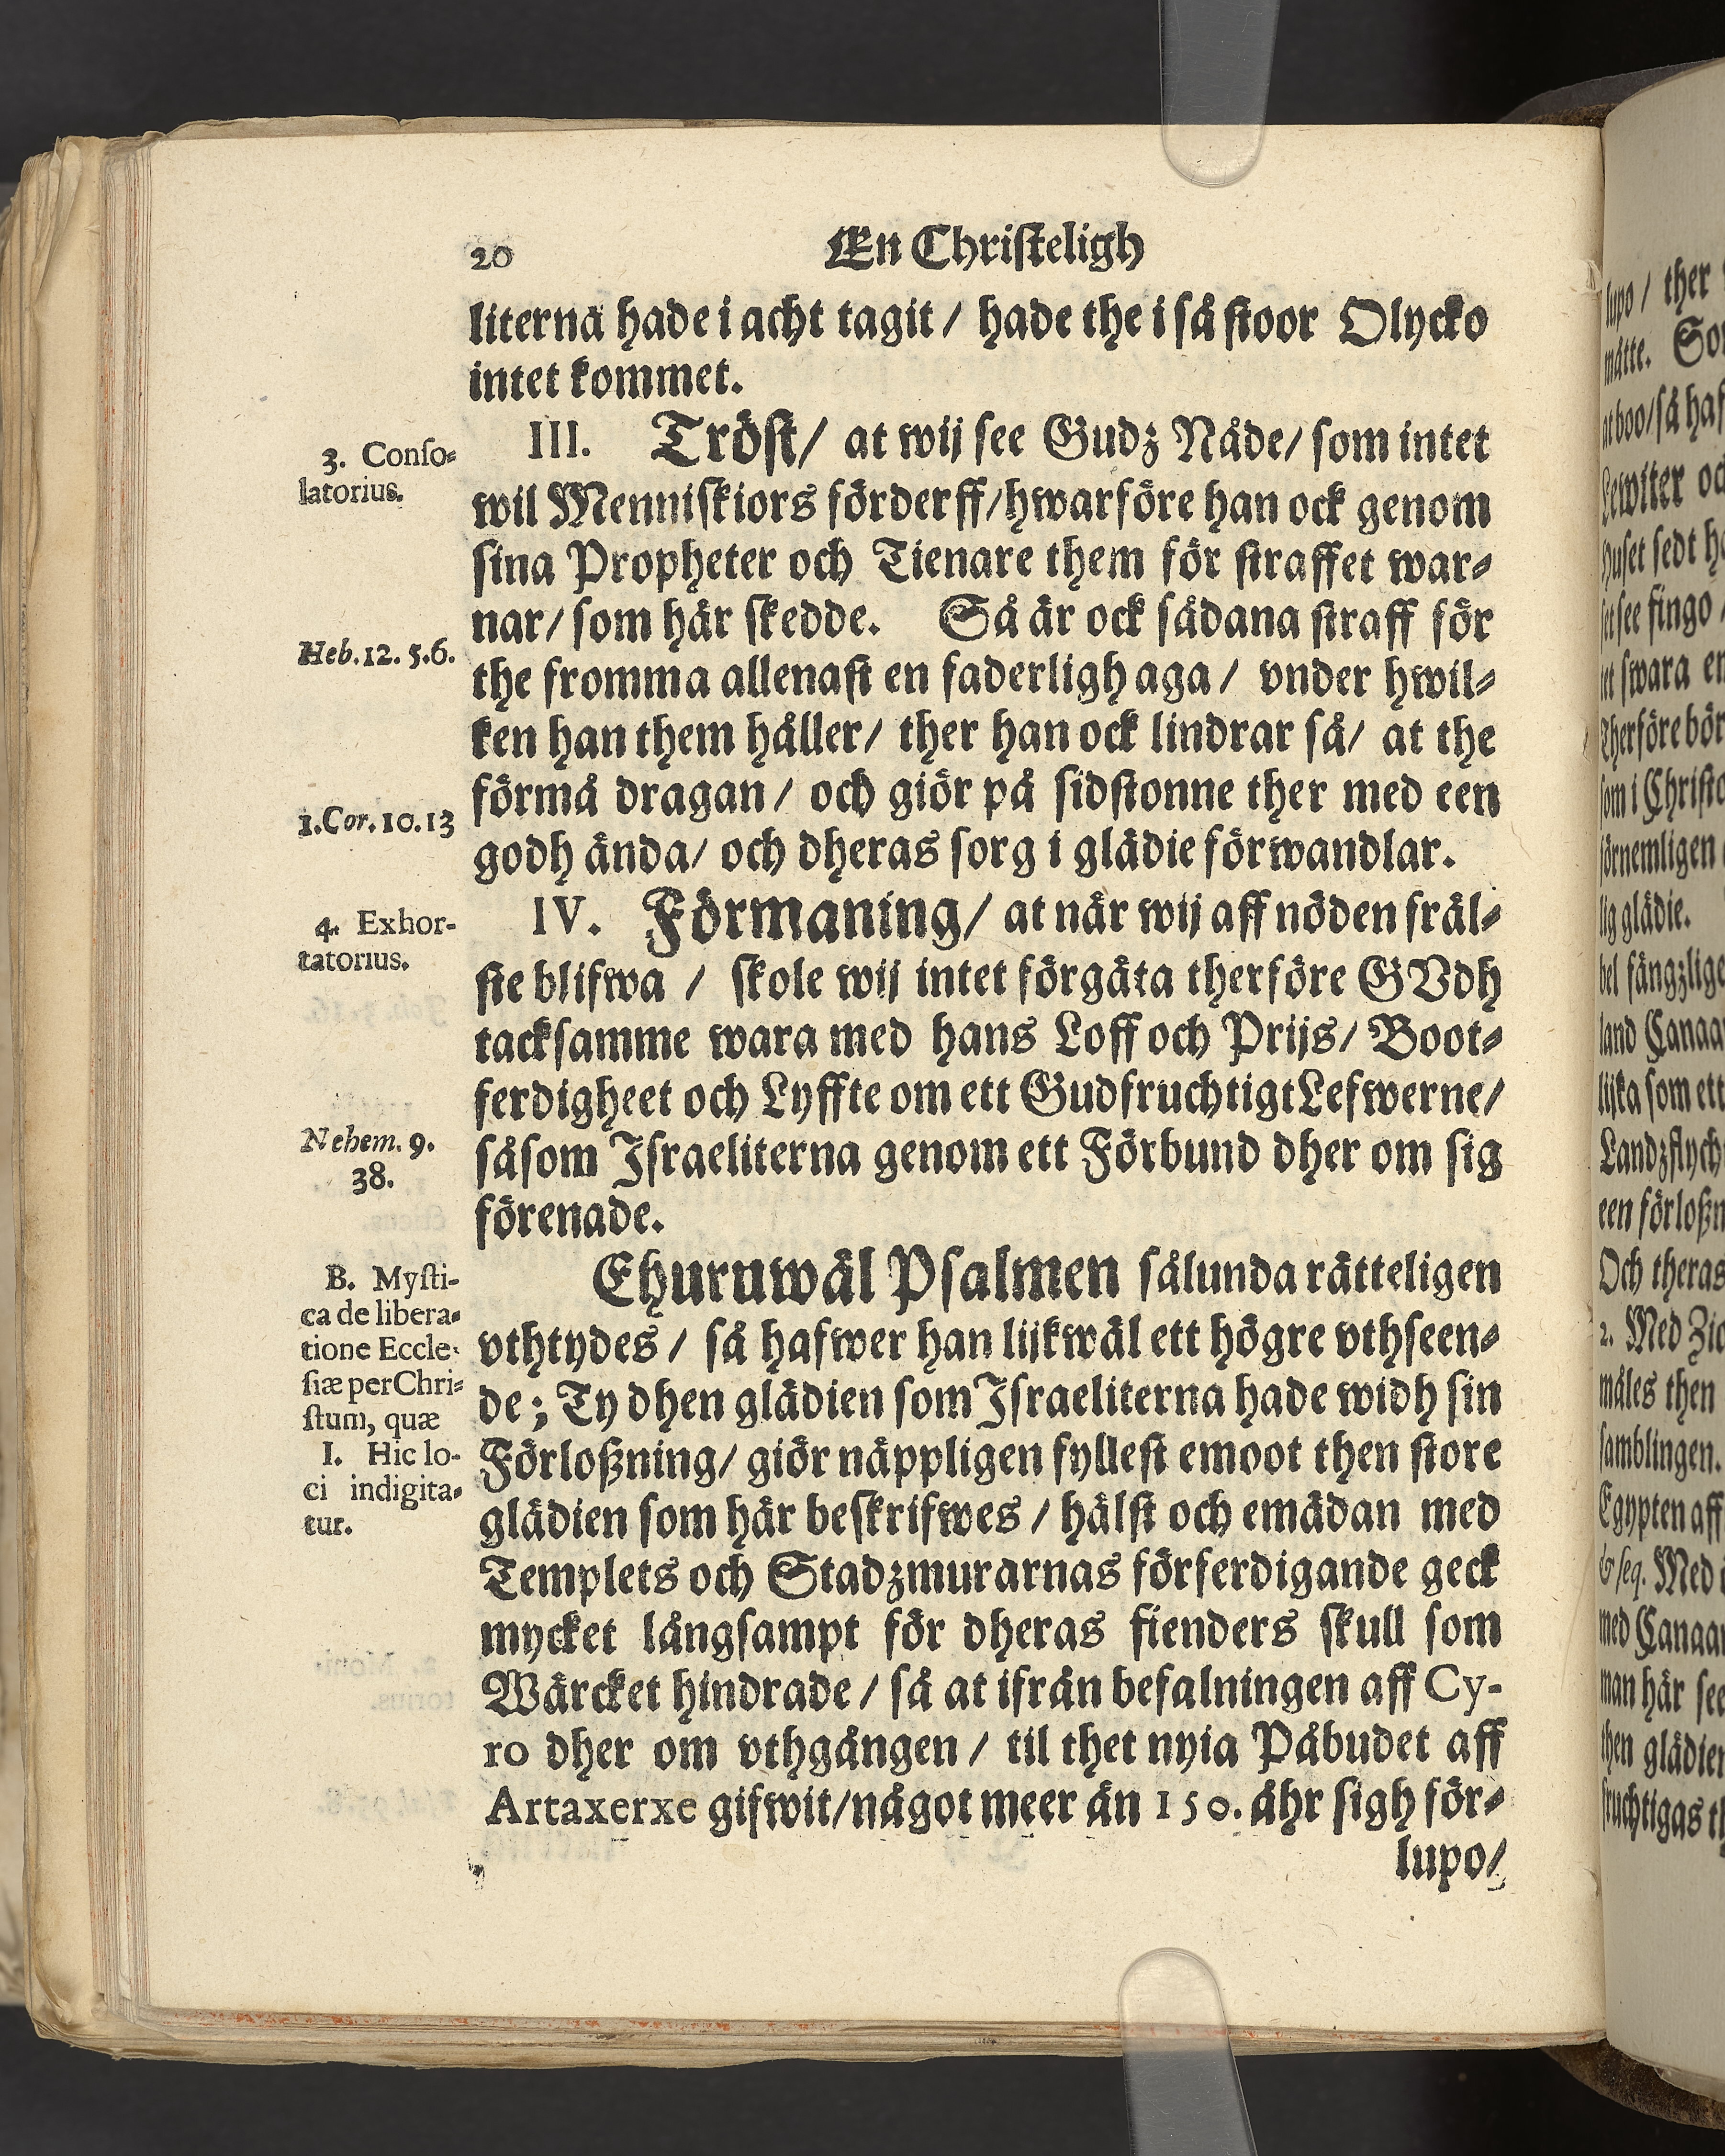 20
En Christeligh
literna hade i acht tagit / hade the i så stoor Olycko
intet kommet.
3. Conso-
latorius.
III. Tröst / at wij see Gudz Nåde / som intet
wil Menniskiors förderff / hwarföre han ock genom
sina Propheter och Tienare them för straffet war-
nar / som här skedde. Så är ock sådana straff för
Heb. 12. 5. 6.
the fromma allenast en faderligh aga / vnder hwil-
ken han them håller / ther han ock lindrar så / at the
förmå dragan / och giör på sidstonne ther med een
1. Cor. 10. 13
godh ända / och dheras sorg i glädie förwandlar.
4. Exhor-
tatorius.
IV. Förmaning / at när wij aff nöden fräl-
ste blifwa / skole wij intet förgäta therföre GVdh
tacksamme wara med hans Loff och Prijs / Boot-
ferdigheet och Lyffte om ett Gudfruchtigt Lefwerne /
Nehem. 9.
38.
såsom Israeliterna genom ett Förbund dher om sig
förenade.
B. Mysti-
ca de libera-
tione Eccle-
siæ per Chri-
stum, quæ
I. Hic lo-
ci indigita-
tur.
Ehuruwäl Psalmen sålunda rätteligen
vthtydes / så hafwer han lijkwäl ett högre vthseen-
de ; Ty dhen glädien som Israeliterna hade widh sin
Förloßning / giör näppligen fyllest emoot then store
glädien som här beskrifwes / hälst och emädan med
Templets och Stadzmurarnas förferdigande geck
mycket långsampt för dheras fienders skull som
Wärcket hindrade / så at ifrån befalningen aff Cy-
ro dher om vthgången / til thet nyia Påbudet aff
Artaxerxe gifwit / något meer än 150. åhr sigh för-
lupo /